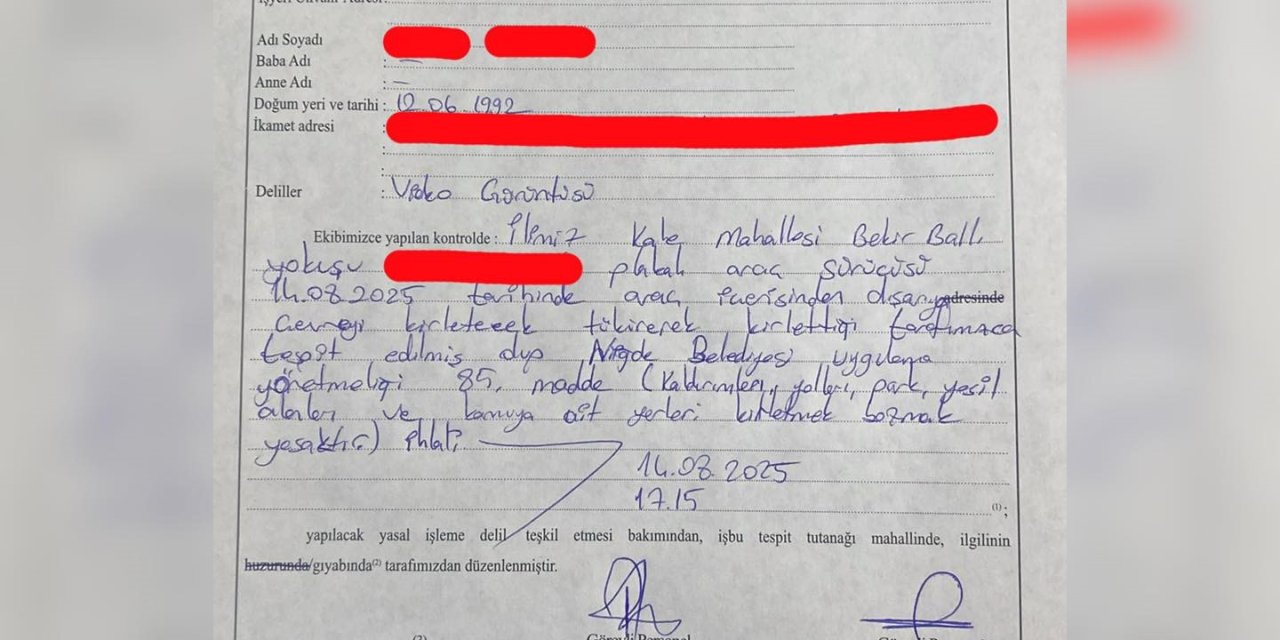 Adı Soyadı
Baba Adı : —
Anne Adı : —
Doğum yeri ve tarihi : 12.06.1992
İkamet adresi :
Deliller : Video Görüntüsü
Ekibimizce yapılan kontrolde : İlimiz Kale Mahallesi Bekir Ballı
yokuşu plakalı araç sürücüsü
14.08.2025 tarihinde araç içerisinden dışarıya adresinde
Çevreyi kirletecek tükürerek kirlettiği tarafımızca
tespit edilmiş olup Niğde Belediyesi uygulama
yönetmeliği 85. madde (Kaldırımları, yolları, park, yeşil
alanları ve kamuya ait yerleri kirletmek bozmak
yasaktır) ihlali
14.08.2025
17.15
(1) ;
yapılacak yasal işleme delil teşkil etmesi bakımından, işbu tespit tutanağı mahallinde, ilgilinin
huzurunda/gıyabında(2) tarafımızdan düzenlenmiştir.